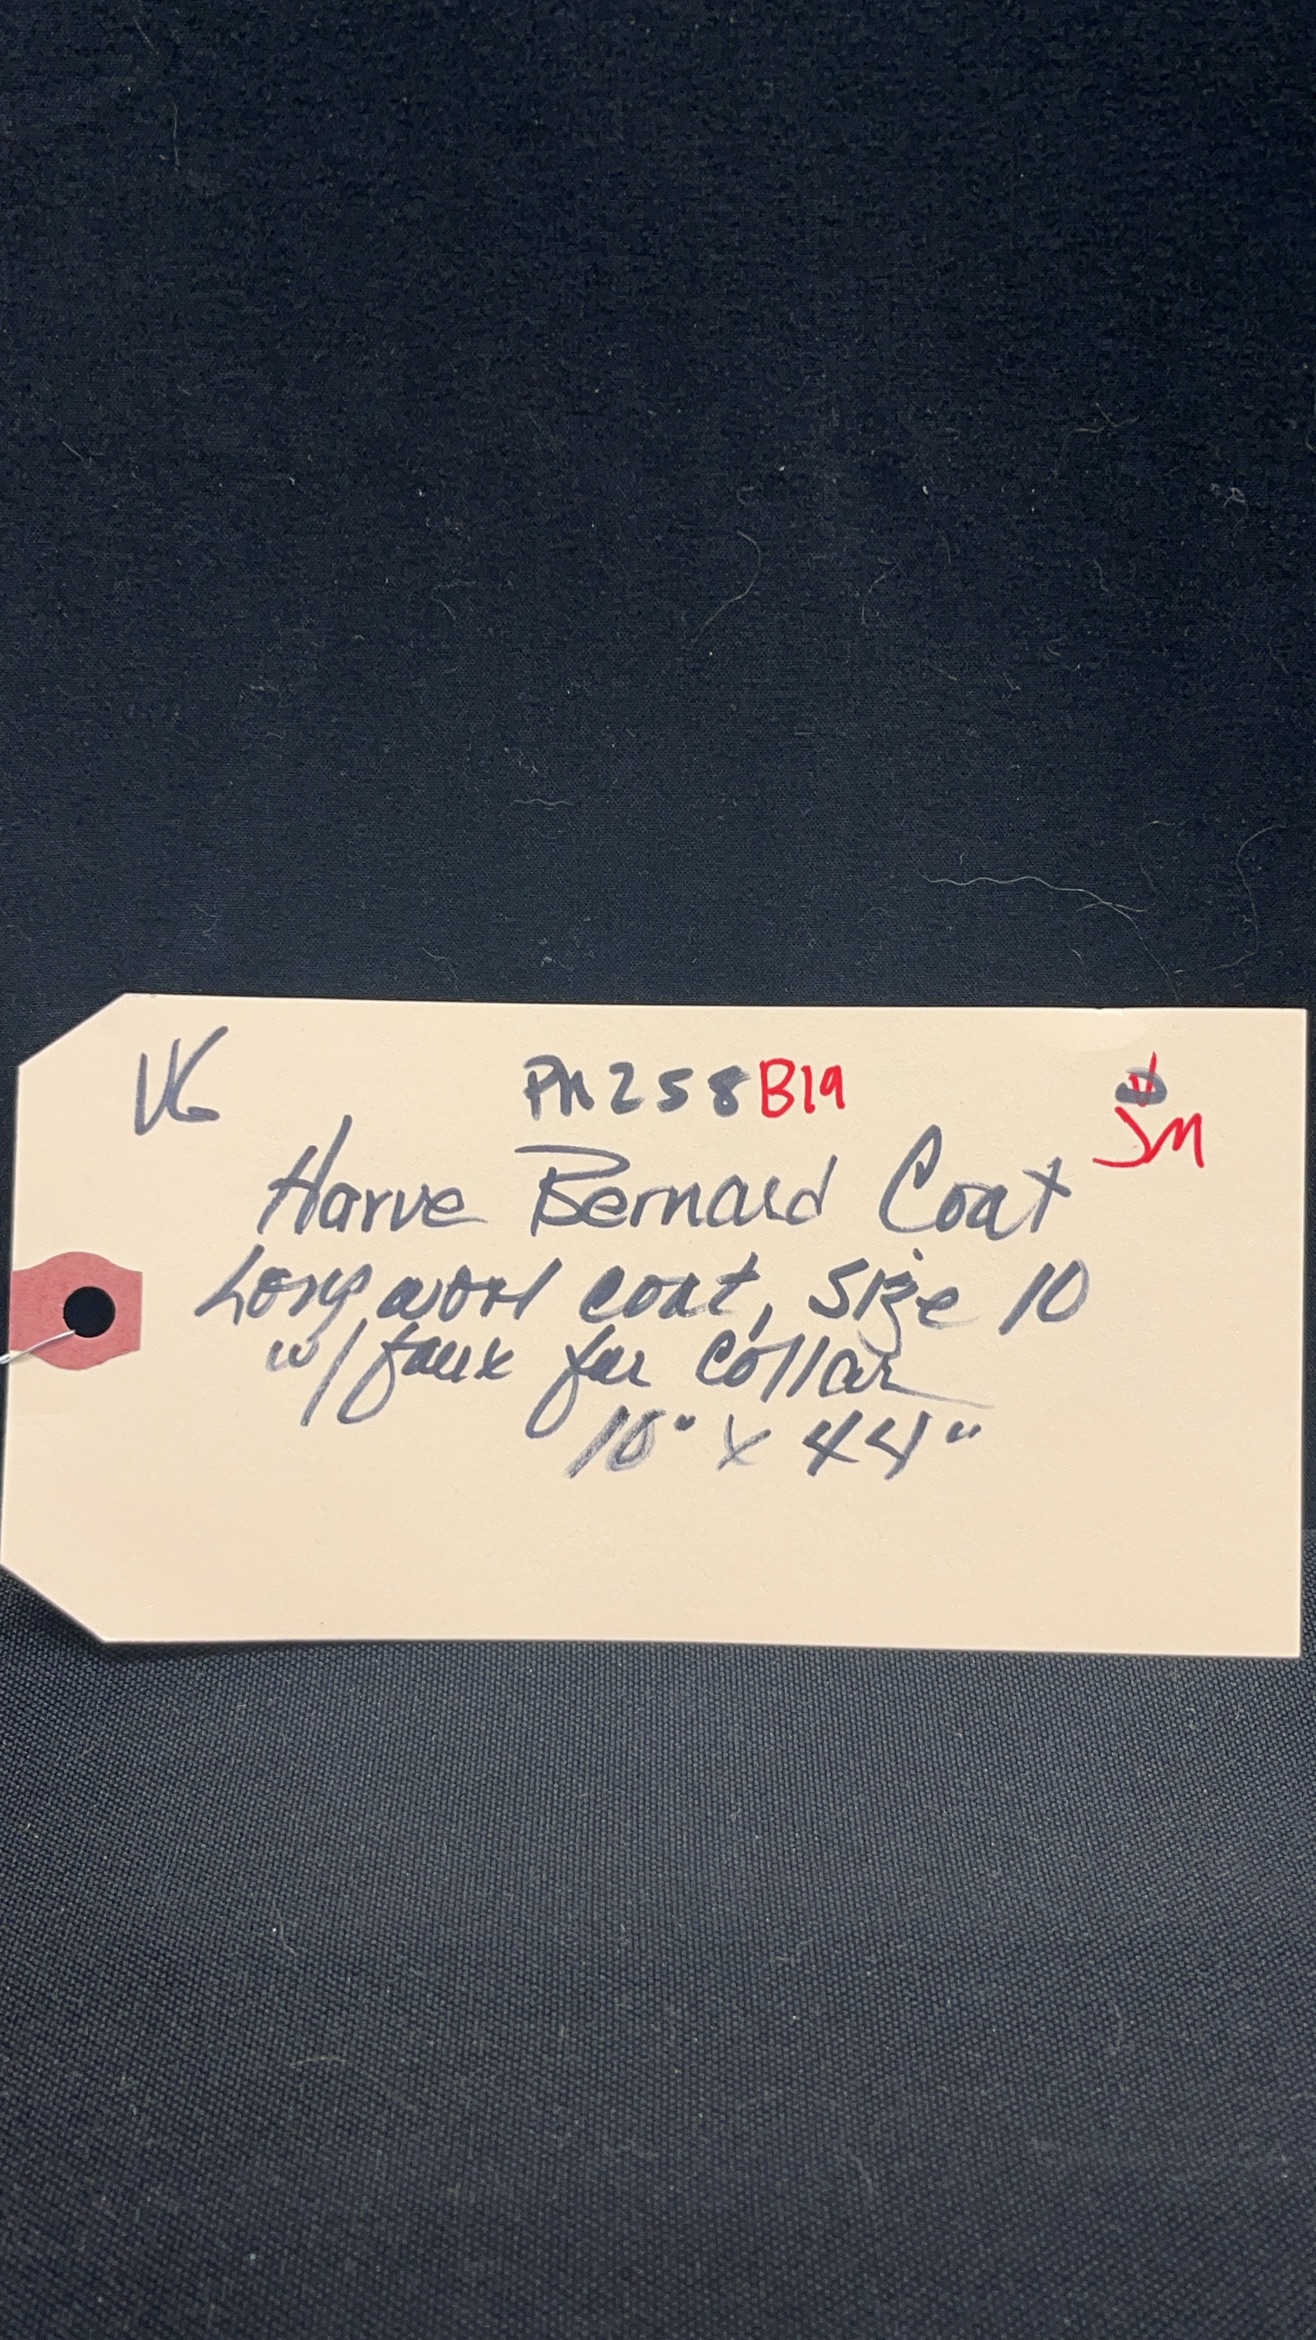 VG PN258B19 JM
Harve Bernard Coat
Long wool coat, size 10
w/ faux fur collar
16" x 44"